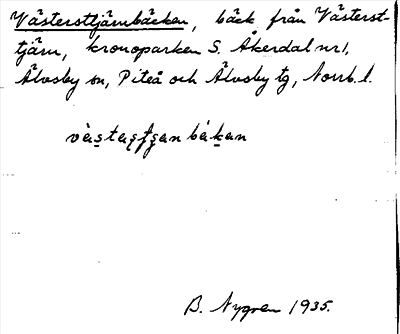 Västerstjärnbäcken, bäck från Västerst-
tjärn, kronoparken S. Åkerdal nr 1,
Älvsby sn, Piteå och Älvsby tg, Norrb. l.
B. Nygren 1935.